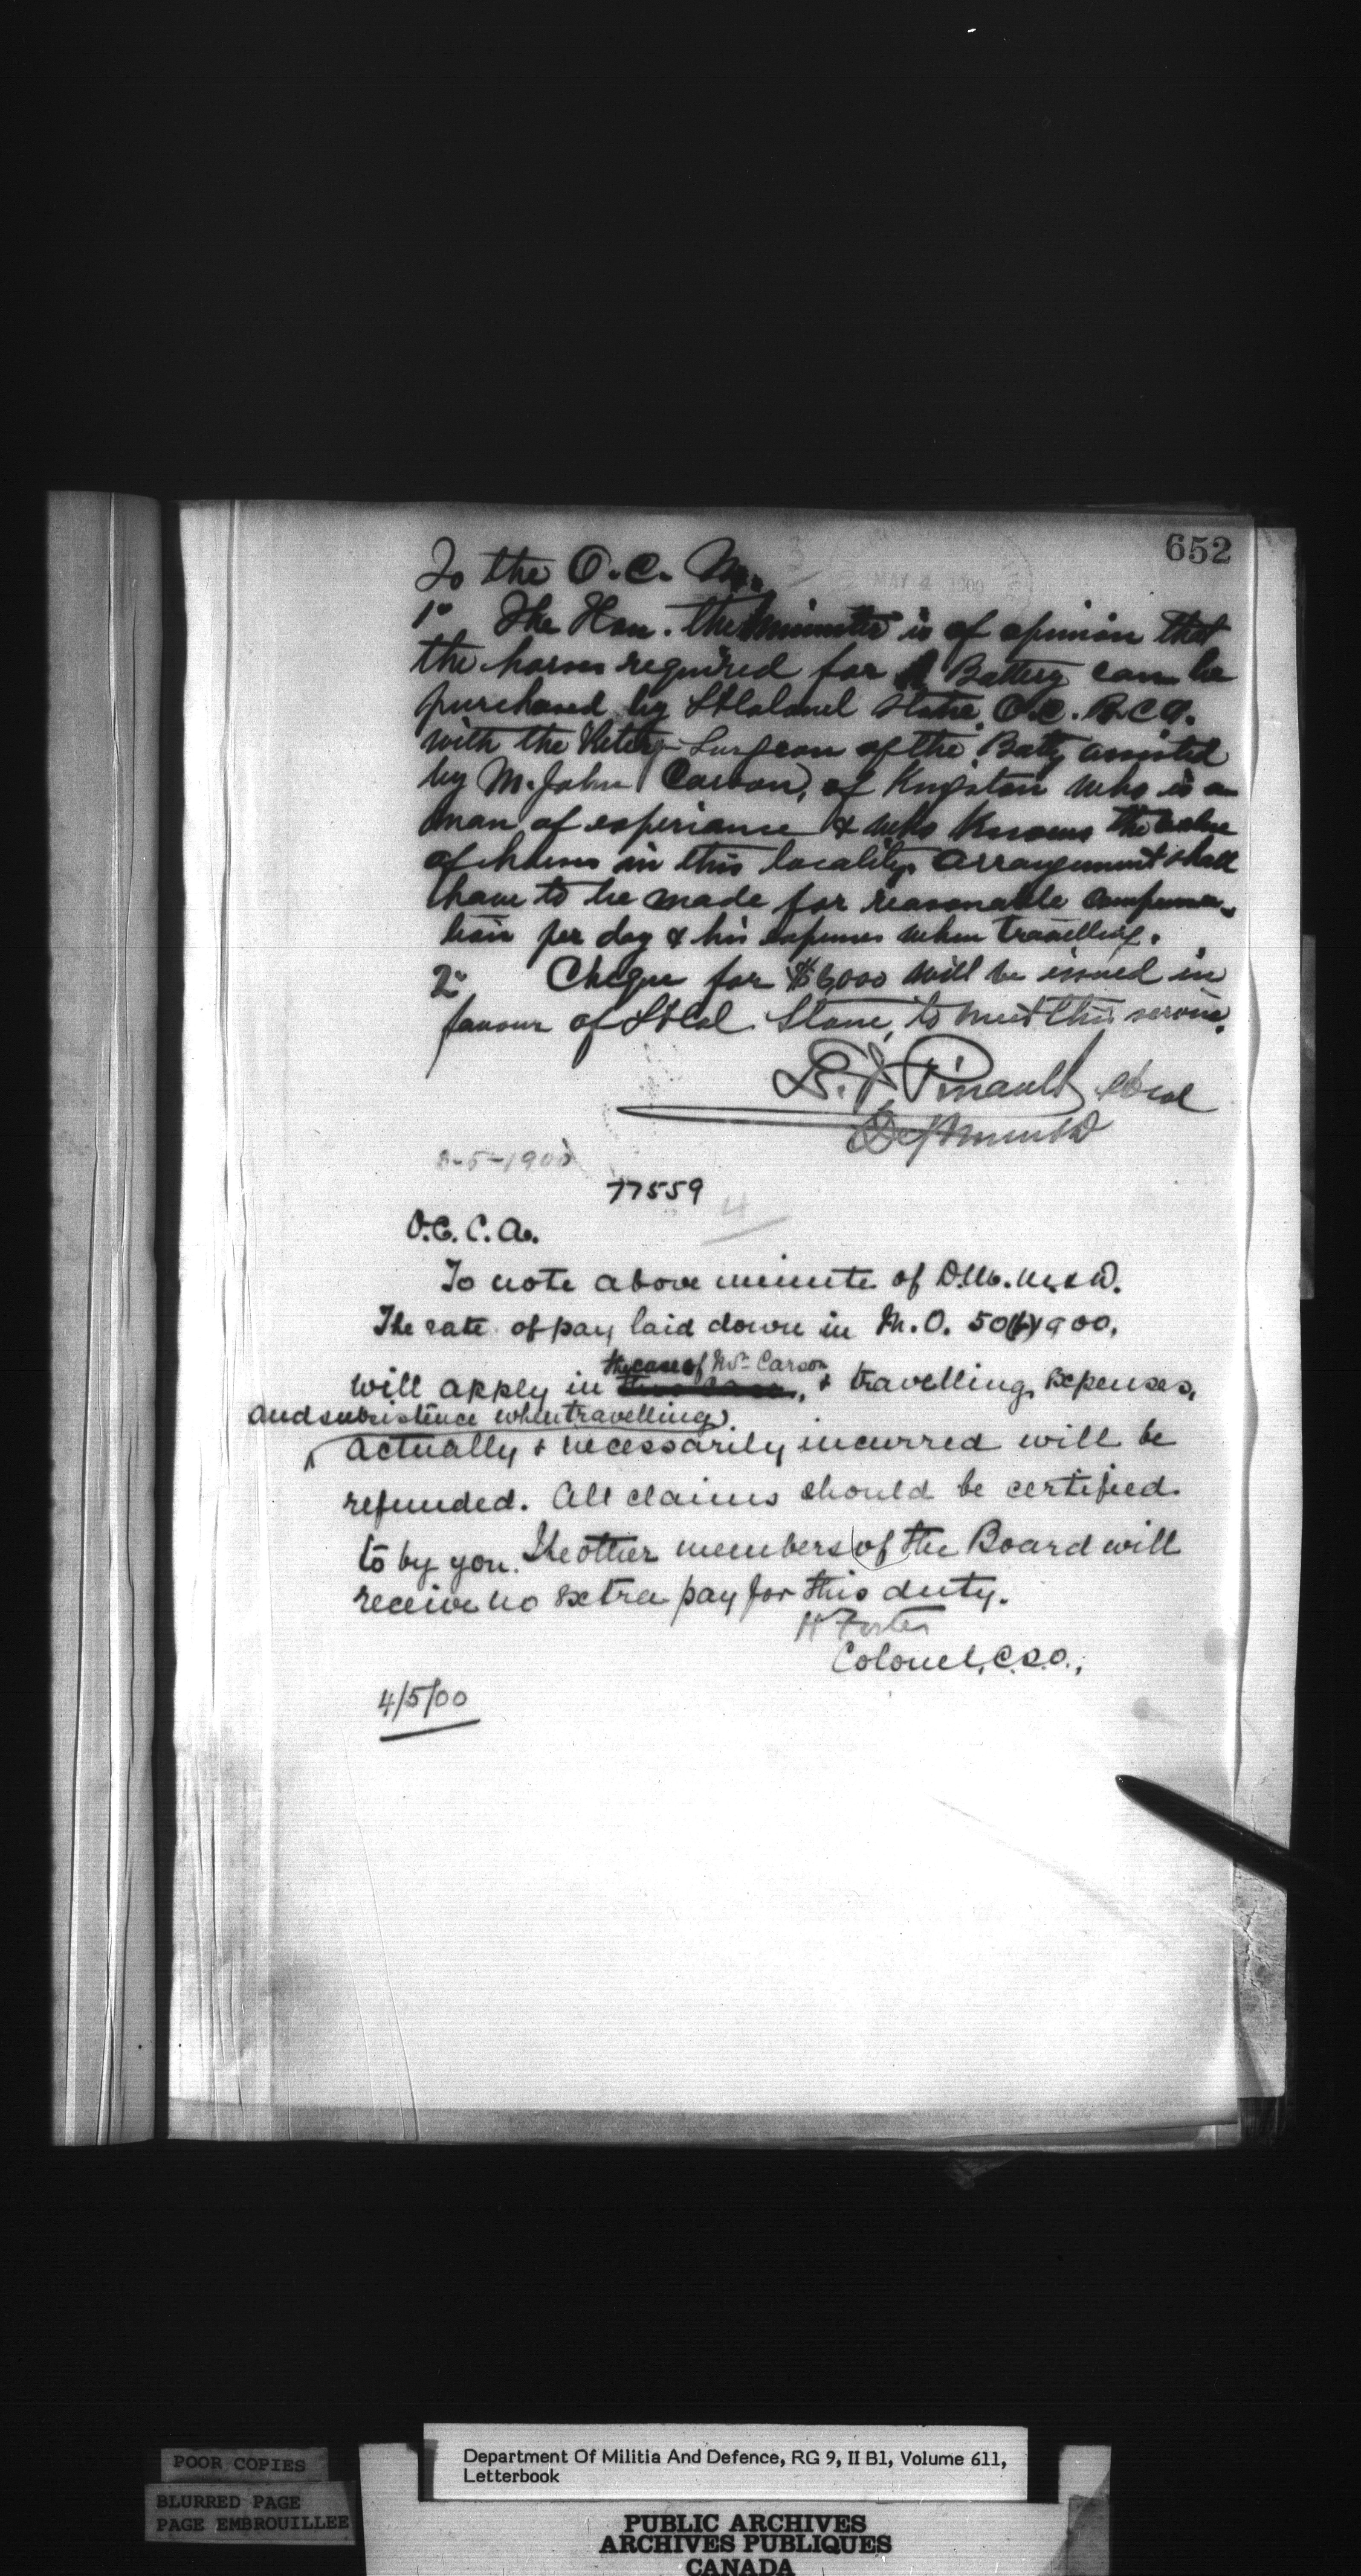 652
To the O.C. M.
3
MAY 4 1900
1º The Hon. the Minister is of opinion that
the horses required for A Battery can be
purchased by Lt Colonel Stone O.C. R.C.A.
with the Vetery Surgeon of the Baty assisted
by M. John Carson, of Kingston who is a
man of experiance & who knows the value
of horses in this locality. Arrangement shall
have to be made for reasonable compensa-
tion per day & his expenses when travelling.
2º Cheque for $6,000 will be issued in
favour of Lt Col. Stone, to meet this service.
L. F. Pinault Lt Col
-5-1900
77559
4
O.C. C.A.
To note above minute of D.M. M. & D.
The rate of pay laid down in M.O. 50(b)/900,
the case of Mr. Carson
will apply in this case, & travelling expenses,
and subsistence when travelling,
actually & necessarily incurred will be
refunded. All claims should be certified
to by you. The other members of the Board will
receive no extra pay for this duty.
H Foster
Colonel, C.S.O.,
4/5/00
POOR COPIES
BLURRED PAGE
PAGE EMBROUILLEE
Department Of Militia And Defence, RG 9, II B1, Volume 611,
Letterbook
PUBLIC ARCHIVES
ARCHIVES PUBLIQUES
CANADA